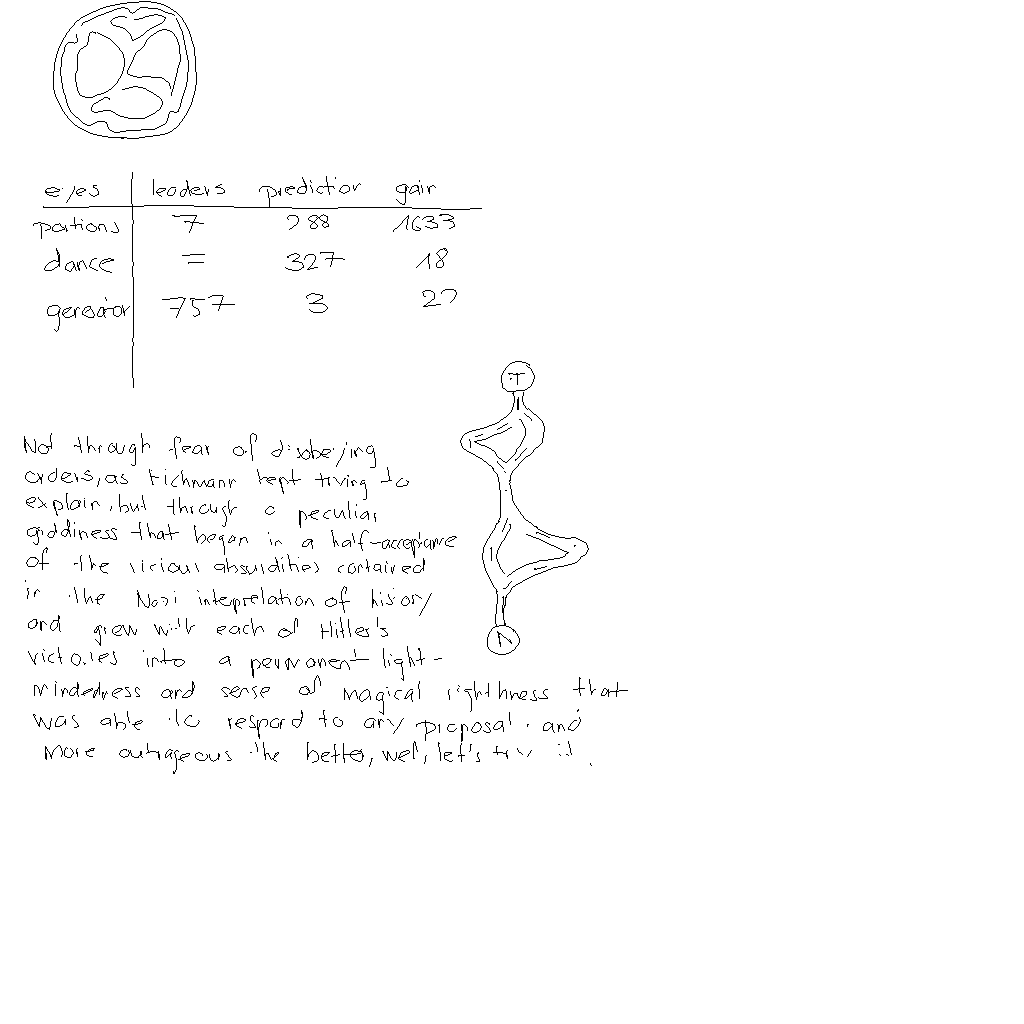 eyes leaders prediction gain
portions 7 288 1633
dance = 327 18
generator 757 3 22
T
Not through fear of disobeying
orders, as Eichmann kept trying to
explain, but through a peculiar
giddiness that began in a half-acceptance
of the vicious absurdities contained
in the Nazi interpretation of history
and grew with each of Hitler's
victories into a permanent light-
mindedness and sense of magical rightness that
was able to respond to any proposal. and
more outrageous the better, well, let's try it.
N